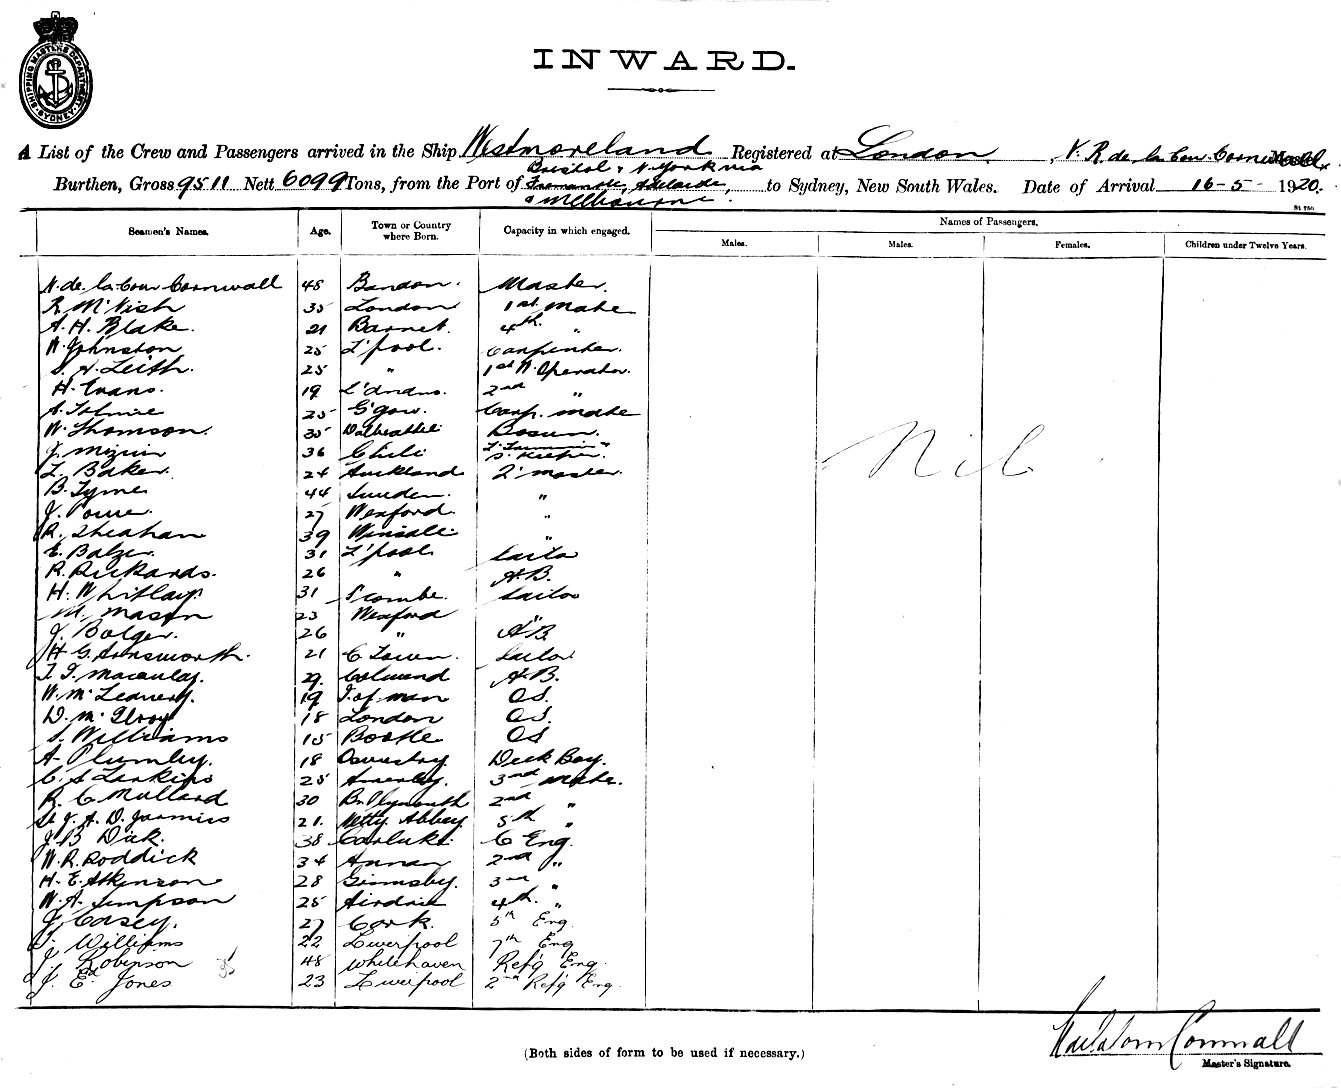 SHIPPING MASTERS DEPARTMENT SYDNEY
INWARD.
A List of the Crew and Passengers arrived in the Ship Westmoreland Registered at London, N. R. de la Cour Cornwall Master,
Bristol & N. York via
Burthen, Gross 9511 Nett 6099 Tons, from the Port of Fremantle, Adelaide, to Sydney, New South Wales. Date of Arrival 16-5- 1920.
& Melbourne.
Names of Passengers.
Seamen's Names. Age. Town or Country where Born. Capacity in which engaged. Males. Males. Females. Children under Twelve Years.
N. de la Cour Cornwall 48 Bandon. Master.
R McNish 35 London 1st Mate
A. H. Blake. 21 Barnet. 4th "
W. Johnston 25 L'pool. Carpenter.
S. H. Leith. 25 " 1st W. Operator.
H. Evans. 19 2nd "
A. 25 G'gow. Carp. mate
W. Thomson. 35 Dalbeattie Bosun.
J. 36 Chili
L. Baker. 24 Auckland Q' master.
B. Tyme 44 "
J. 27 Wexford. "
R. Sheahan 39 "
E. Balzer. 31 L'pool Sailor
R. Rickards. 26 " A.B.
H. Whitlay. 31 S'combe. Sailor
M. Mason 23 Wexford "
J. Bolger. 26 " A.B.
H G. Ainsworth. 21 C. Town. Sailor
T. J. Macaulay. 29. A.B.
W. Mc 19 I. of man O.S.
D. McIlroy 18 London O.S.
S. Williams 15 Bootle O.S
A. Plumley. 18 Oswestry Deck Boy.
C. S Larkins 25 Anerley. 3rd Mate.
R. C. Mullard 30 Plymouth 2nd "
21. Netty Abbey 5th "
J. B Dick. 38 Carluke. C Eng.
W. R. Roddick 34 Annan 2nd "
H. E. Atkinson 28 Grimsby. 3rd "
W. A. Simpson 25 Airdrie 4th. "
J. Casey. 27 Cork. 5th Eng
Williams 22 Liverpool 7th Eng
J. Robinson 48 Whitehaven Refg Eng.
J. Ed Jones 23 Liverpool 2nd Refg Eng
Nil
Cornwall
Master's Signature.
(Both sides of form to be used if necessary.)